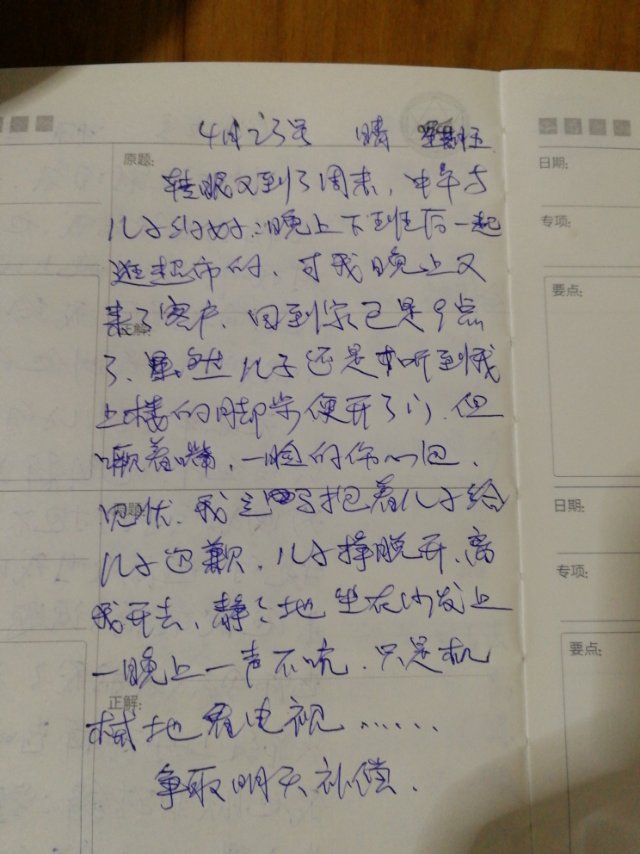 4月23号 晴 星期五
原题:
转眼又到了周末,中午与
儿子约好:晚上下班后一起
逛超市的,可我晚上又
来了客户,回到家已是9点
了,虽然儿子还是听到我
上楼的脚步便开了门,但
噘着嘴,一脸的伤心,
见状,我忙抱着儿子给
儿子道歉,儿子挣脱开,离
我开去,静静地坐在沙发上
一晚上一声不吭,只是机
正解:
械地看电视……
争取明天补偿.
日期:
专项:
要点:
日期:
专项:
要点: